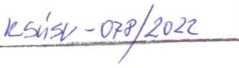 KSÚSV-078/2022